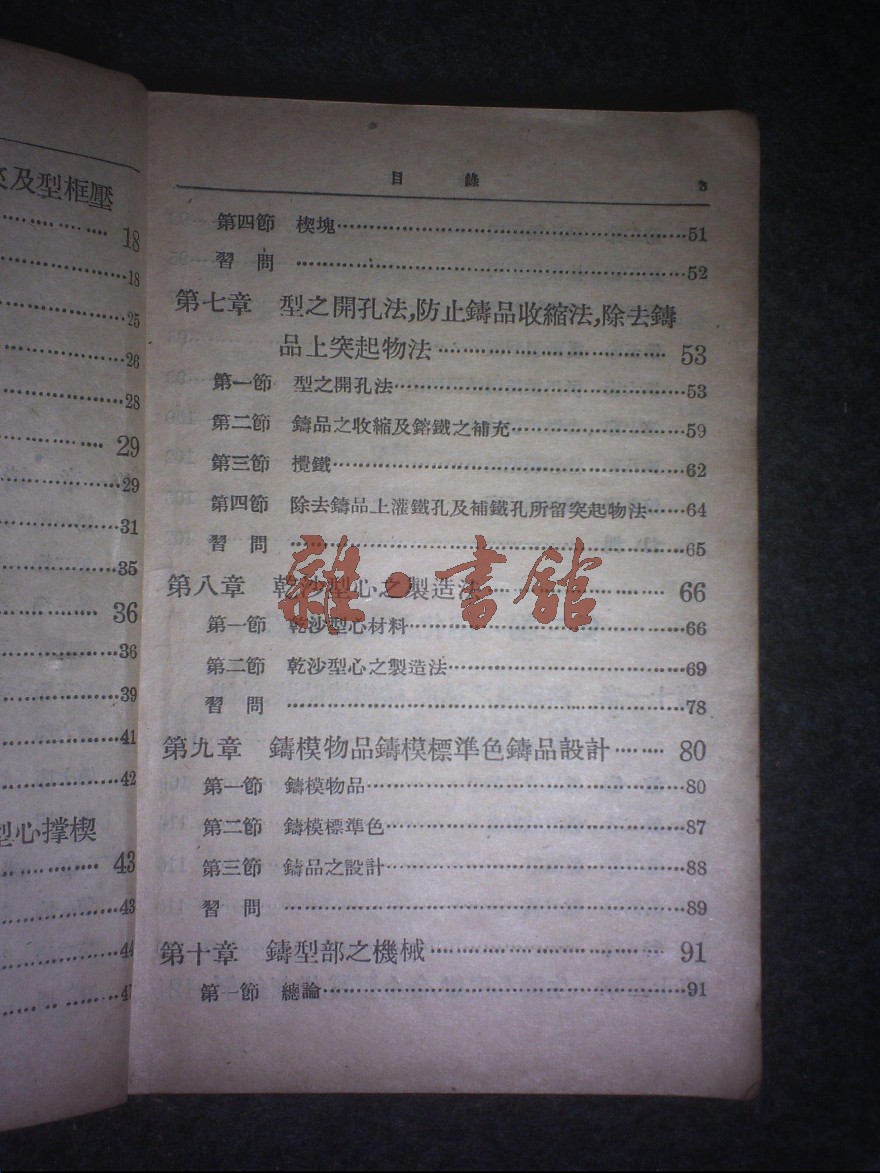 及型框壓
18
18
25
26
28
29
29
31
35
36
36
39
41
42
型心撑楔
43
43
44
目 錄 3
第四節 楔塊……51
習 問……52
第七章 型之開孔法,防止鑄品收縮法,除去鑄
品上突起物法……53
第一節 型之開孔法……53
第二節 鑄品之收縮及鎔鐵之補充……59
第三節 攪鐵……62
第四節 除去鑄品上灌鐵孔及補鐵孔所留突起物法……64
習 問……65
第八章 乾沙型心之製造法……66
第一節 乾沙型心材料……66
第二節 乾沙型心之製造法……69
習 問……78
第九章 鑄模物品鑄模標準色鑄品設計……80
第一節 鑄模物品……80
第二節 鑄模標準色……87
第三節 鑄品之設計……88
習 問……89
第十章 鑄型部之機械……91
第一節 總論……91
雜·書館